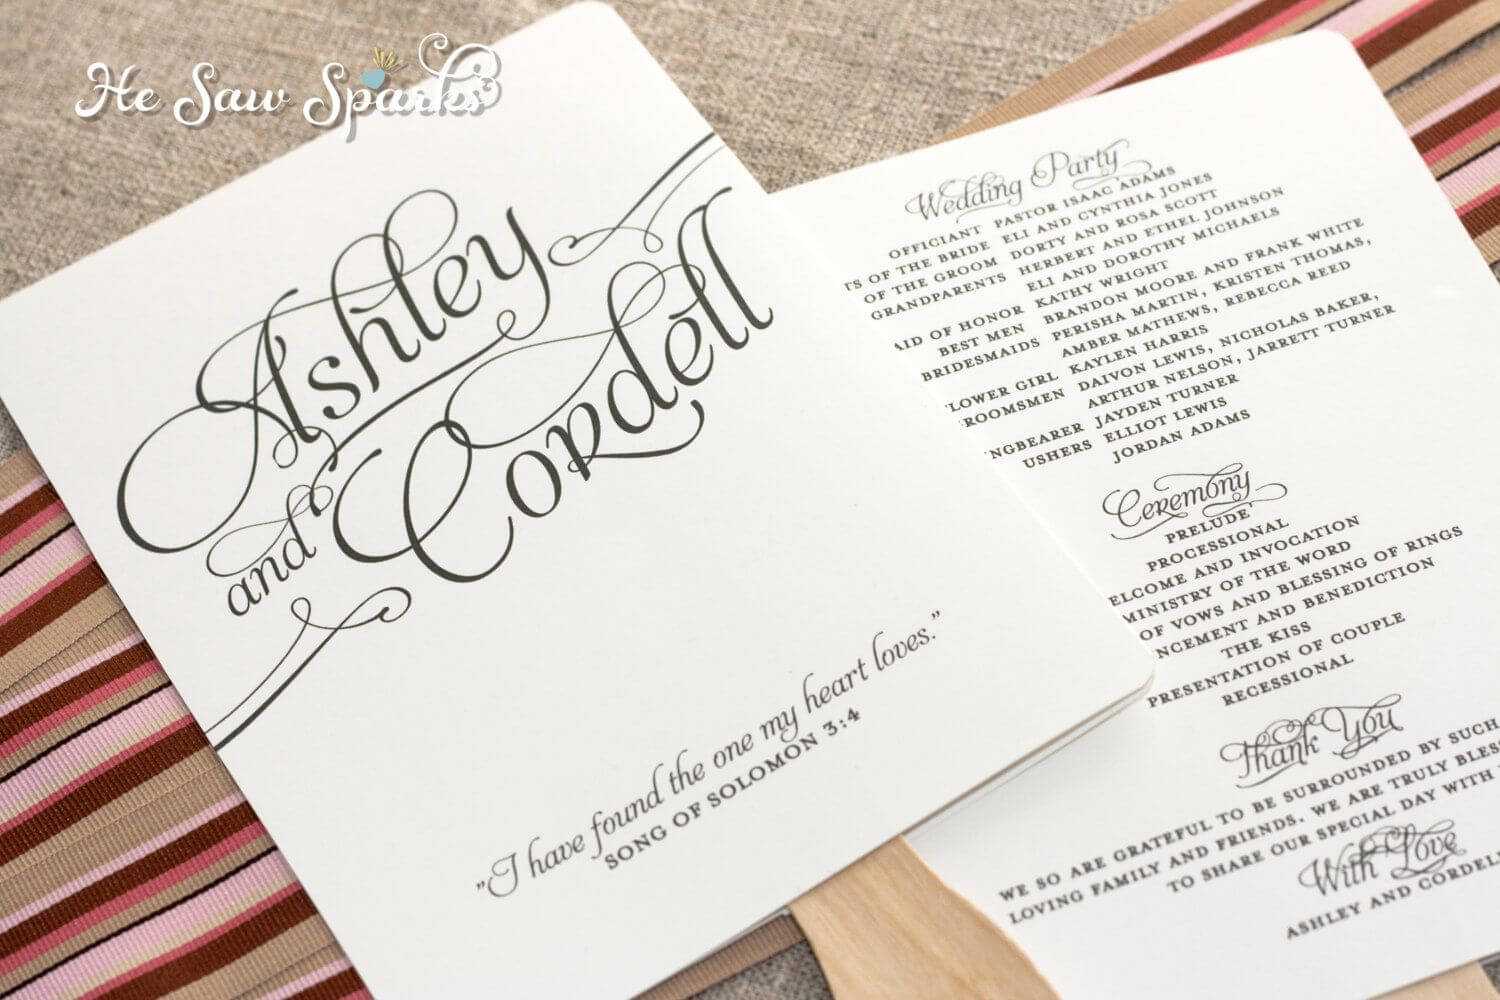 He Saw Sparks
Ashley
and Cordell
"I have found the one my heart loves."
SONG OF SOLOMON 3:4
Wedding Party
OFFICIANT PASTOR ISAAC ADAMS
OF THE BRIDE ELI AND CYNTHIA JONES
OF THE GROOM DORTY AND ROSA SCOTT
GRANDPARENTS HERBERT AND ETHEL JOHNSON
ELI AND DOROTHY MICHAELS
OF HONOR KATHY WRIGHT
BEST MEN BRANDON MOORE AND FRANK WHITE
BRIDESMAIDS PERISHA MARTIN, KRISTEN THOMAS,
AMBER MATHEWS, REBECCA REED
LOWER GIRL KAYLEN HARRIS
ROOMSMEN DAIVON LEWIS, NICHOLAS BAKER,
ARTHUR NELSON, JARRETT TURNER
NGBEARER JAYDEN TURNER
USHERS ELLIOT LEWIS
JORDAN ADAMS
Ceremony
PRELUDE'
PROCESSIONAL
ELCOME AND INVOCATION
MINISTRY OF THE WORD
OF VOWS AND BLESSING OF RINGS
NCEMENT AND BENEDICTION
THE KISS
PRESENTATION OF COUPLE
RECESSIONAL
Thank You
WE SO ARE GRATEFUL TO BE SURROUNDED BY SUCH
LOVING FAMILY AND FRIENDS. WE ARE TRULY BLESS
TO SHARE OUR SPECIAL DAY WITH
With Love
ASHLEY AND CORDELL